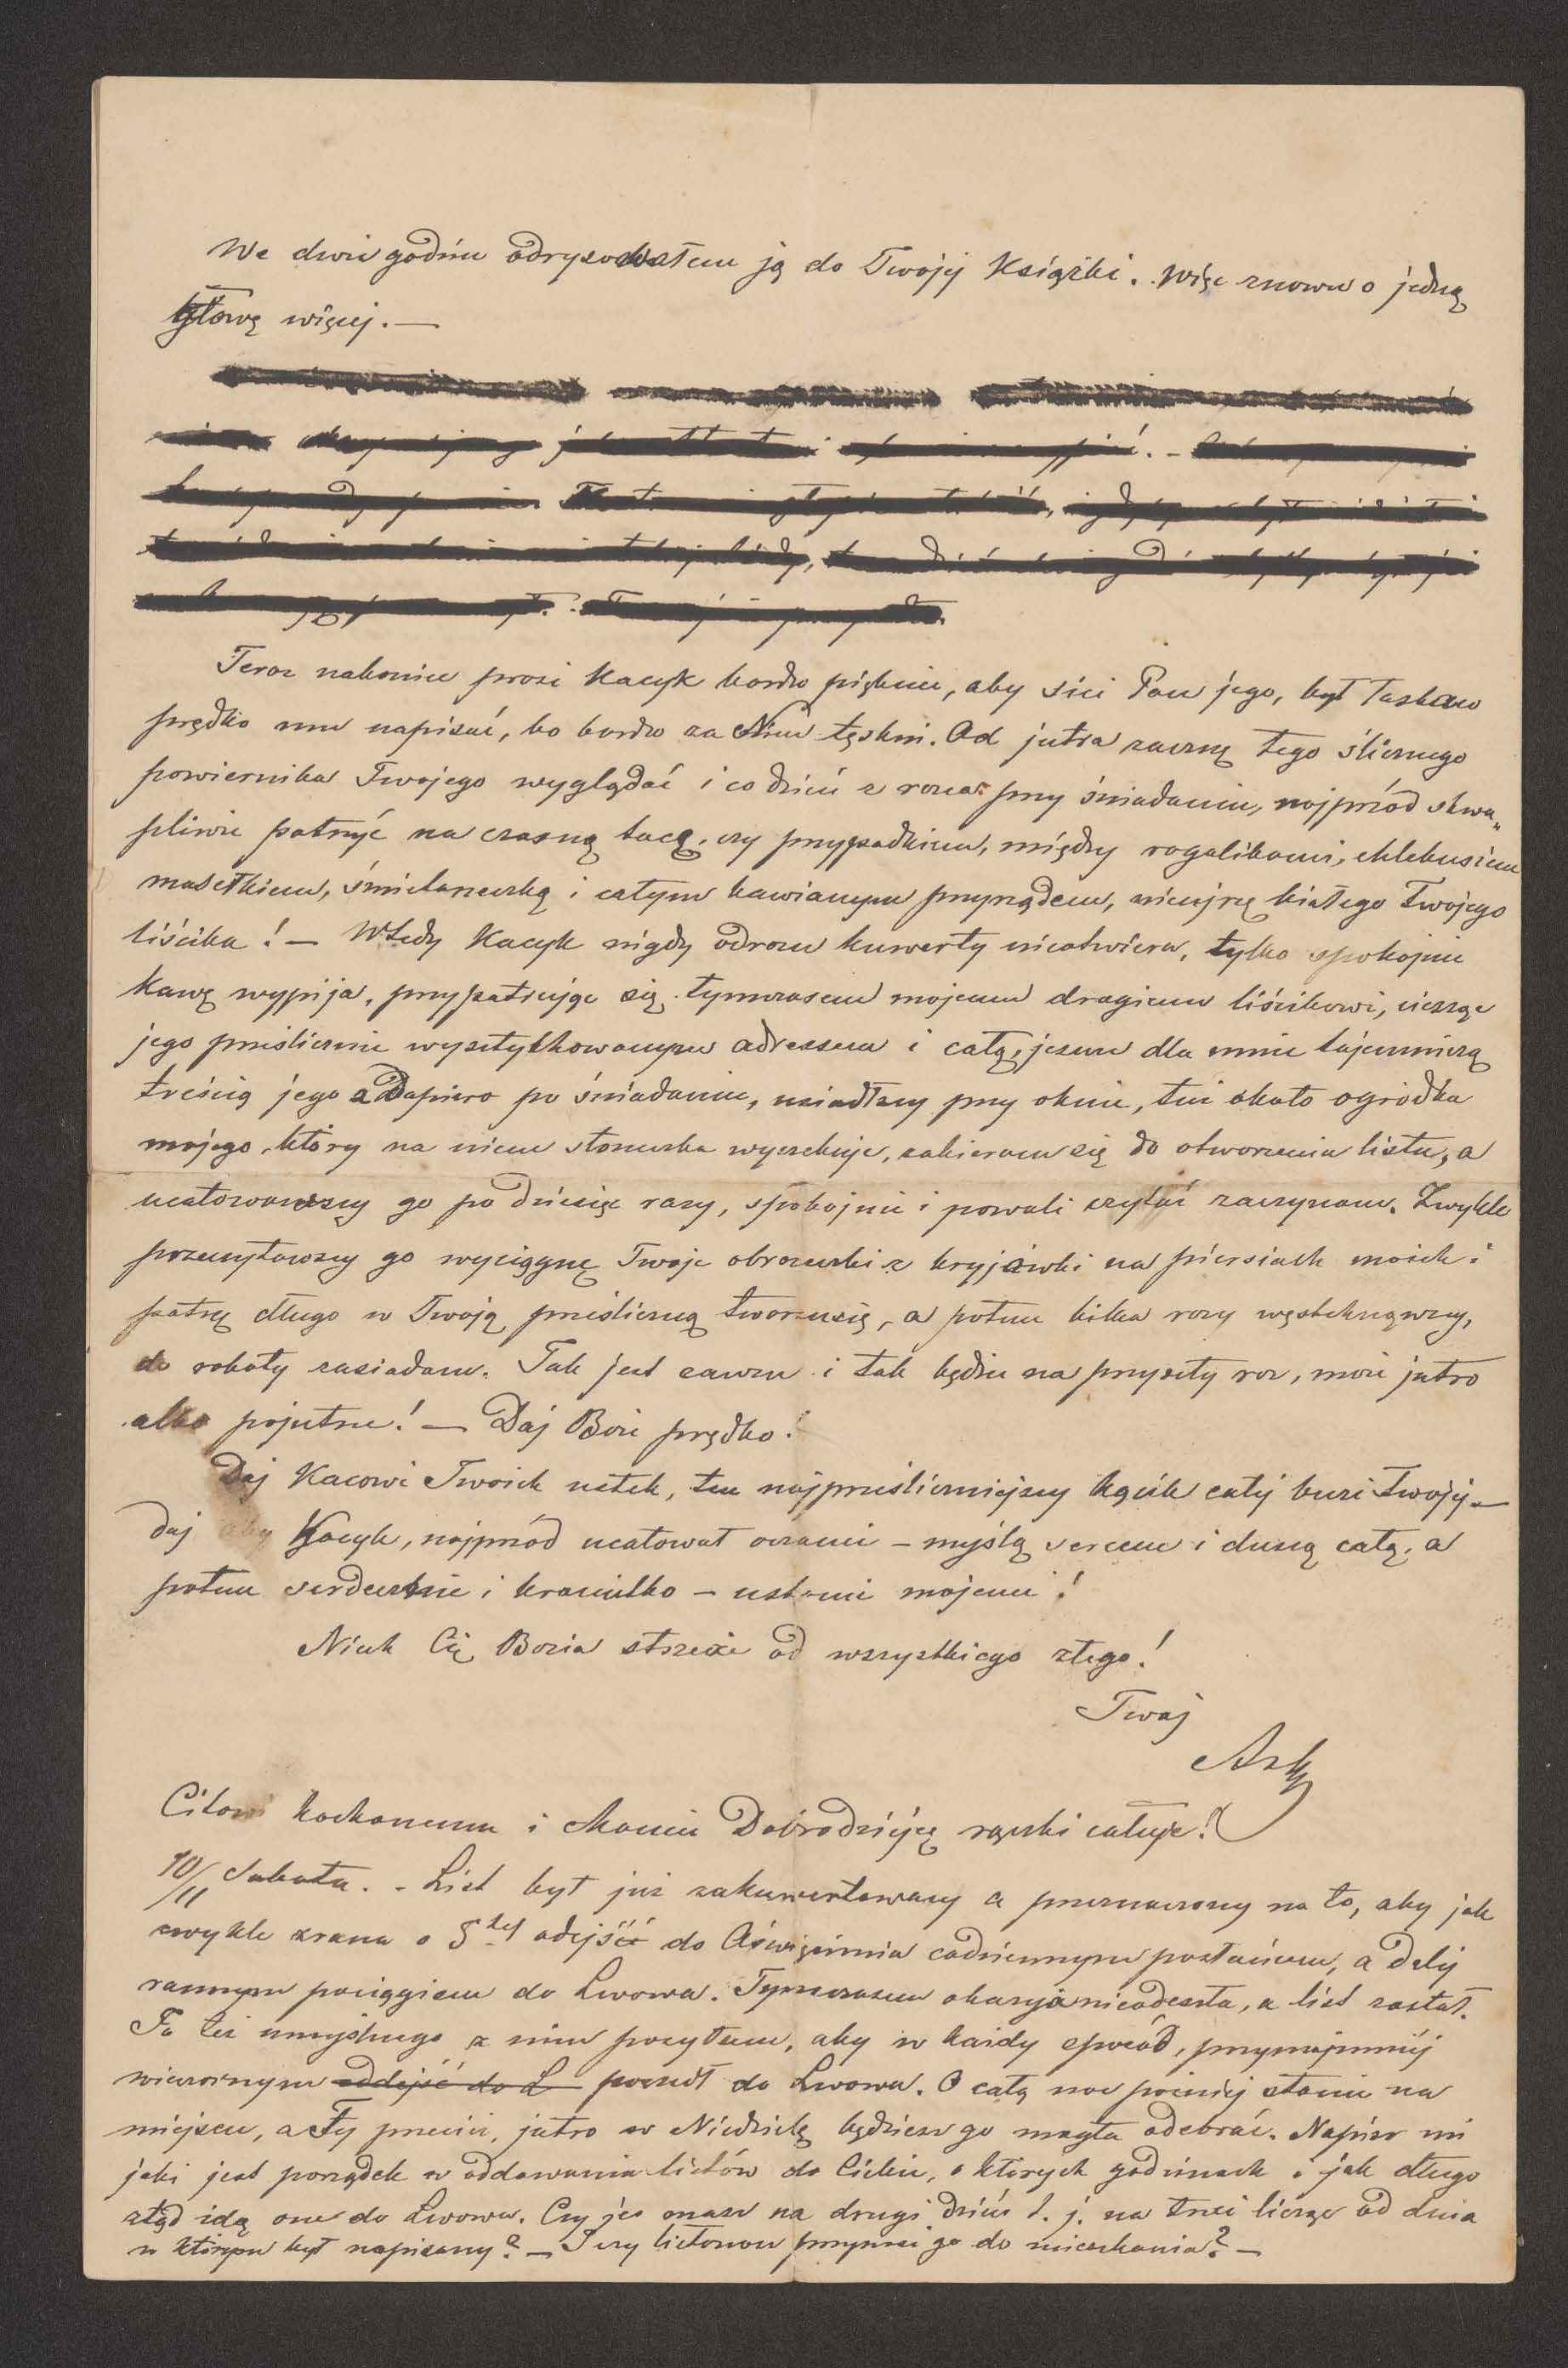 We dwie godzin odrysowałem ją do Twojéj Książki. Więc znowu o jedną
głowę więcej. —
Teraz nakoniec prosi Kacyk bardzo pięknie, aby sici Pan jego, był łaskaw
prędko mu napisać, bo bardzo za Nim tęskni. Od jutra zacznę tego ślicznego
powiernika Twojego wyglądać i co dzień z rana przy śniadaniu, najprzód skwa„
pliwie patrzyć na czarną tacę, czy przypadkiem, między rogalikami, chlebusiem
masełkiem, śmietaneczką i całym kawianym przyrządem, nieujrzę białego Twojego
liścika! — Wtedy Kacyk nigdy odrazu kuwerty nieotwiera, tylko spokojnie
Kawę wypija, przypatrując się tymczasem mojemu drogiemu liścikowi, ciesząc
jego prześlicznie wysztychowanym adressem i całą, jeszcze dla mnie tajemniczą
treścią jego a Dopiero po śniadaniu, usiadłszy przy oknie, tuż około ogródka
mojego, który na niem słoneczka wyczekuje, zabieram się do otworzenia listu, a
ucałowawszy go po dziesięć razy, spokojnie i powoli czytać zaczynam. Zwykle
przeczytawszy go wyciągnę Twoje obrazeczki z kryjówki na piersiach moich i
patrzę długo w Twoją prześliczną twarzusię, a potem kilka razy westchnąwszy,
do roboty zasiadam. Tak jest zawsze i tak będzie na przyszły raz, może jutro
albo pojutrze! — Daj Boże prędko!
Daj Kacowi Twoich ustek, ten najprześliczniejszy kącik całéj buzi Twojéj —
daj aby Kacyk, najprzód ucałował oczami — myślą sercem i duszą całą, a
potem serdecznie i — ustami mojemi!
Niech Cię Bozia strzeże od wszystkiego złego!
Twój
Art
kochanemu i Mamie Dobrodziejcę rączki całuje!
10/11 Sobota. - List był już zakuwertowany a przeznaczony na to, aby jak
zwykle zrana o 5téj odejść do Oświęcimia codziennym posłańcem, a daléj
rannym pociągiem do Lwowa. Tymczasem okazyja nieodeszła, a list został.
To też umyślnego z nim posyłam, aby w każdy sposób, przynajmniéj
wieczornym oddejść do L poszedł do Lwowa. O całą noc poźniéj stanie na
miejscu, a Ty przecież, jutro w Niedzielę będziesz go mogła odebrać. Napisz mi
jaki jest porządek w oddawaniu listów do Ciebie, o których godzinach i jak długo
ztąd idą one do Lwowa. Czy je masz na drugi dzień t. j. na trzeci licząc od dnia
w którym był napisany? — I czy listonosz przynosi go do mieszkania? —